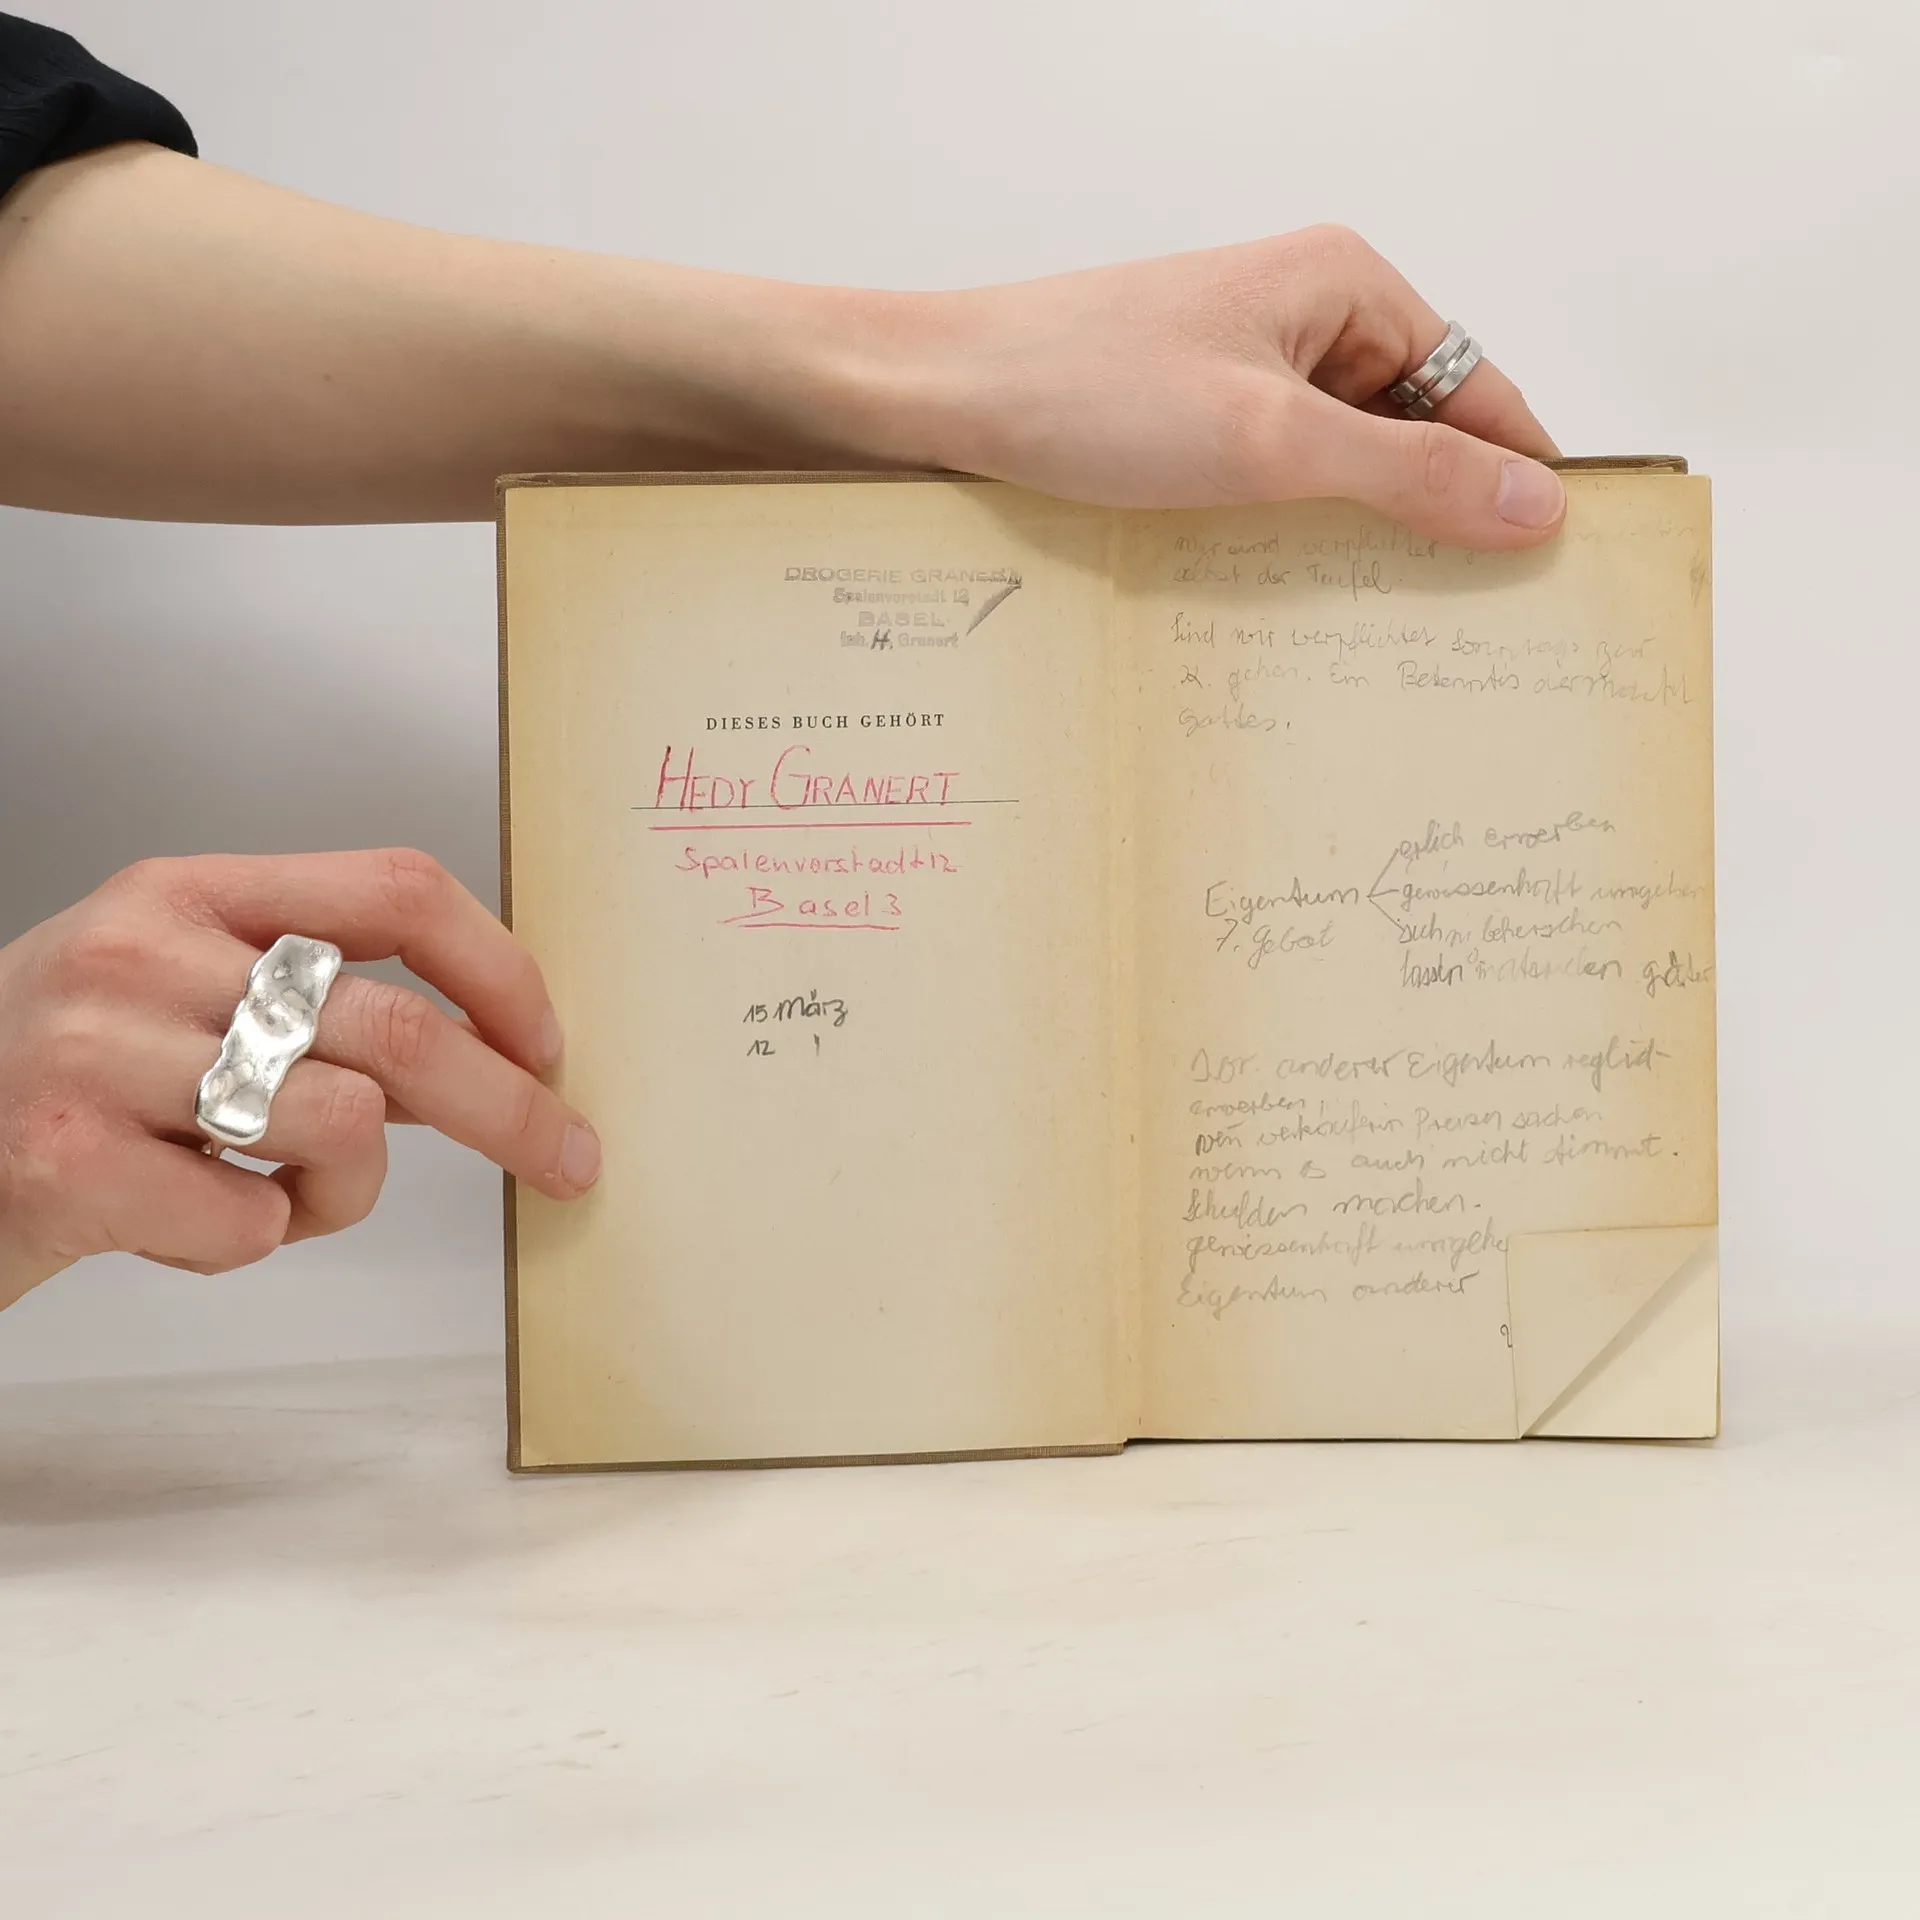 DROGERIE GRANERT
Spalenvorstadt 12
BASEL
Inh. H. Granert
DIESES BUCH GEHÖRT
HEDY GRANERT
Spalenvorstadt 12
Basel 3
15 März
12 "
Wir sind verpflichtet
selbst der Teufel.
Sind wir verpflichtet Sonntags zur
K. gehen. Ein
Gottes.
erlich erwerben
Eigentum gewissenhaft umgehen
7. Gebot sich zu beherschen
lassen güter
anderer Eigentum
erwerben.
Preisen
wenn es auch nicht stimmt.
Schulden machen.
gewissenhaft umgehe
Eigentum anderer